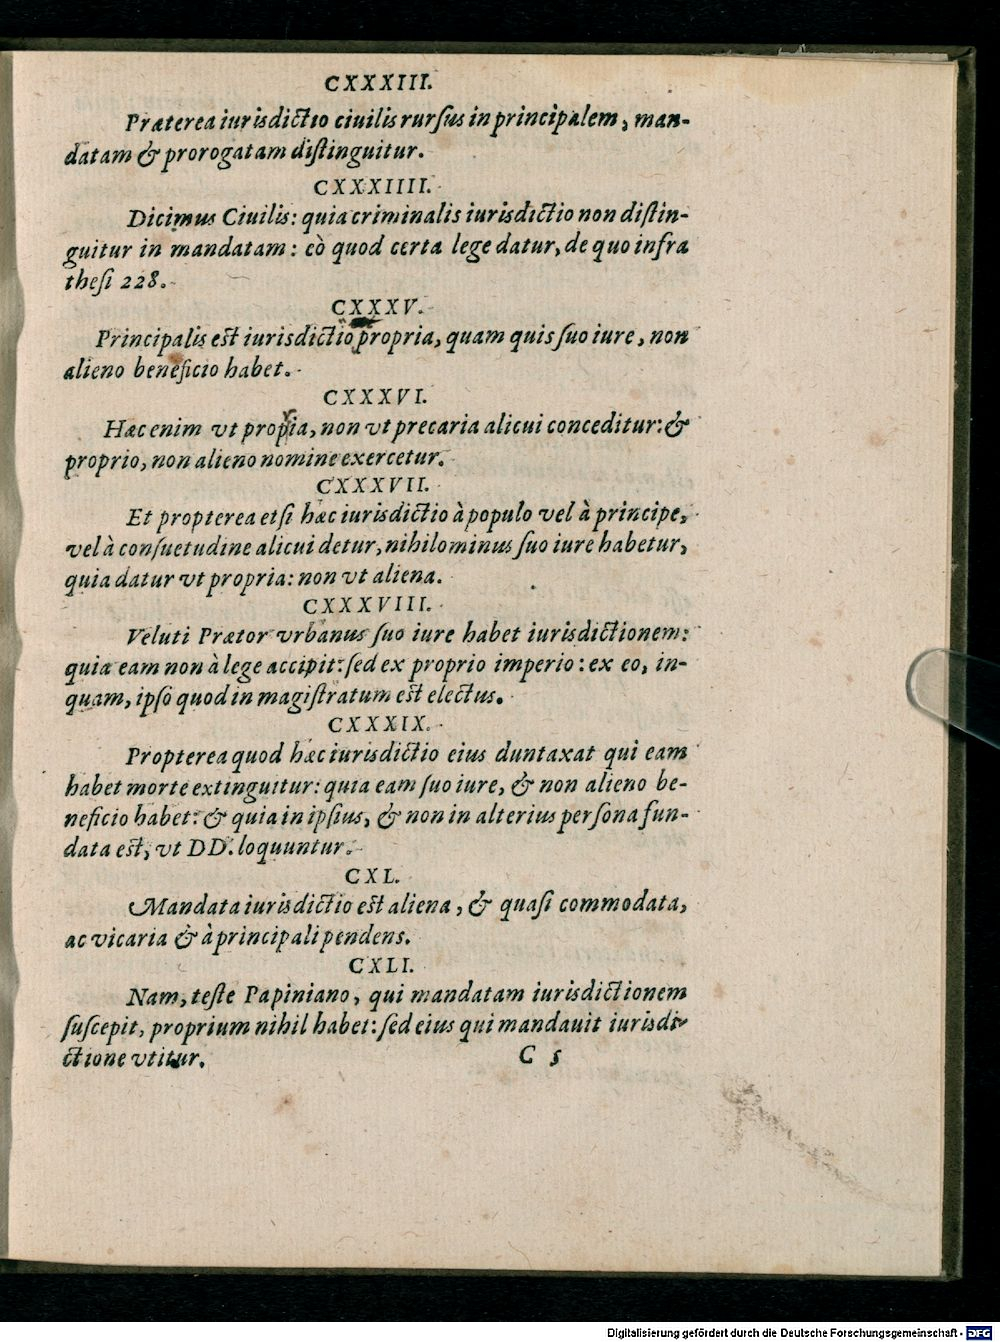 CXXXIII.
Præterea iurisdictio ciuilis rursus in principalem, man-
datam & prorogatam distinguitur.
CXXXIIII.
Dicimus Ciuilis: quia criminalis iurisdictio non distin-
guitur in mandatam: eò quod certa lege datur, de quo infra
thesi 228.
CXXXV.
Principalis est iurisdictio propria, quam quis suo iure, non
alieno beneficio habet.
CXXXVI.
Hæc enim vt propria, non vt precaria alicui conceditur: &
proprio, non alieno nomine exercetur.
CXXXVII.
Et propterea etsi hæc iurisdictio à populo vel à principe,
vel à consuetudine alicui detur, nihilominus suo iure habetur,
quia datur vt propria: non vt aliena.
CXXXVIII.
Veluti Prætor vrbanus suo iure habet iurisdictionem:
quia eam non à lege accipit: sed ex proprio imperio: ex eo, in-
quam, ipso quod in magistratum est electus.
CXXXIX.
Propterea quod hæc iurisdictio eius duntaxat qui eam
habet morte extinguitur: quia eam suo iure, & non alieno be-
neficio habet: & quia in ipsius, & non in alterius persona fun-
data est, vt DD. loquuntur.
CXL.
Mandata iurisdictio est aliena, & quasi commodata,
ac vicaria & à principali pendens.
CXLI.
Nam, teste Papiniano, qui mandatam iurisdictionem
suscepit, proprium nihil habet: sed eius qui mandauit iurisdi-
ctione vtitur. C 5
Digitalisierung gefördert durch die Deutsche Forschungsgemeinschaft - DFG